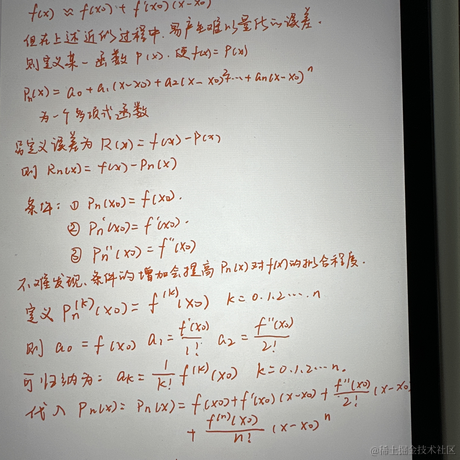 f(x) ≈ f(x₀) + f'(x₀)(x-x₀)
但在上述近似过程中,易产生难以量化的误差.
则定义某一函数 P(x).使 f(x) = P(x)
Pn(x) = a₀ + a₁(x-x₀) + a₂(x-x₀)²+…+an(x-x₀)ⁿ
为一个多项式函数
定义误差为 R(x) = f(x) - P(x)
则 Rn(x) = f(x) - Pn(x)
条件: ① Pn(x₀) = f(x₀).
② Pn'(x₀) = f'(x₀).
③ Pn''(x₀) = f''(x₀)
不难发现,条件的增加会提高 Pn(x) 对 f(x) 的拟合程度.
定义 Pn⁽ᵏ⁾(x₀) = f⁽ᵏ⁾(x₀) k = 0.1.2….n
则 a₀ = f(x₀) a₁ = f'(x₀)/1! a₂ = f''(x₀)/2!
可归纳为: ak = 1/k! f⁽ᵏ⁾(x₀) k = 0.1.2…n.
代入 Pn(x): Pn(x) = f(x₀) + f'(x₀)(x-x₀) + f''(x₀)/2! (x-x₀
+ f⁽ⁿ⁾(x₀)/n! (x-x₀)ⁿ
@稀土掘金技术社区